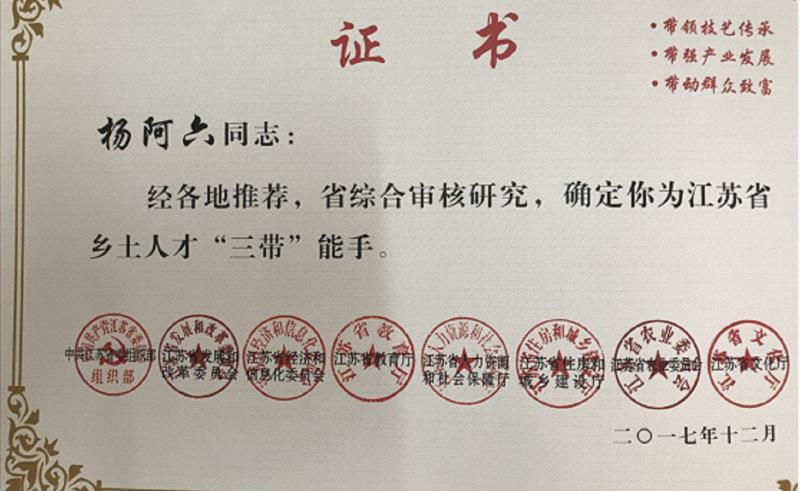 证书
·带领技艺传承
·带强产业发展
·带动群众致富
杨阿六同志：
经各地推荐，省综合审核研究，确定你为江苏省
乡土人才“三带”能手。
中共江苏省委组织部
江苏省发展和
改革委员会
江苏省经济和
信息化委员会
江苏省教育厅
江苏省人力资源
和社会保障厅
江苏省住房和
城乡建设厅
江苏省农业委员会
江苏省文化厅
二〇一七年十二月